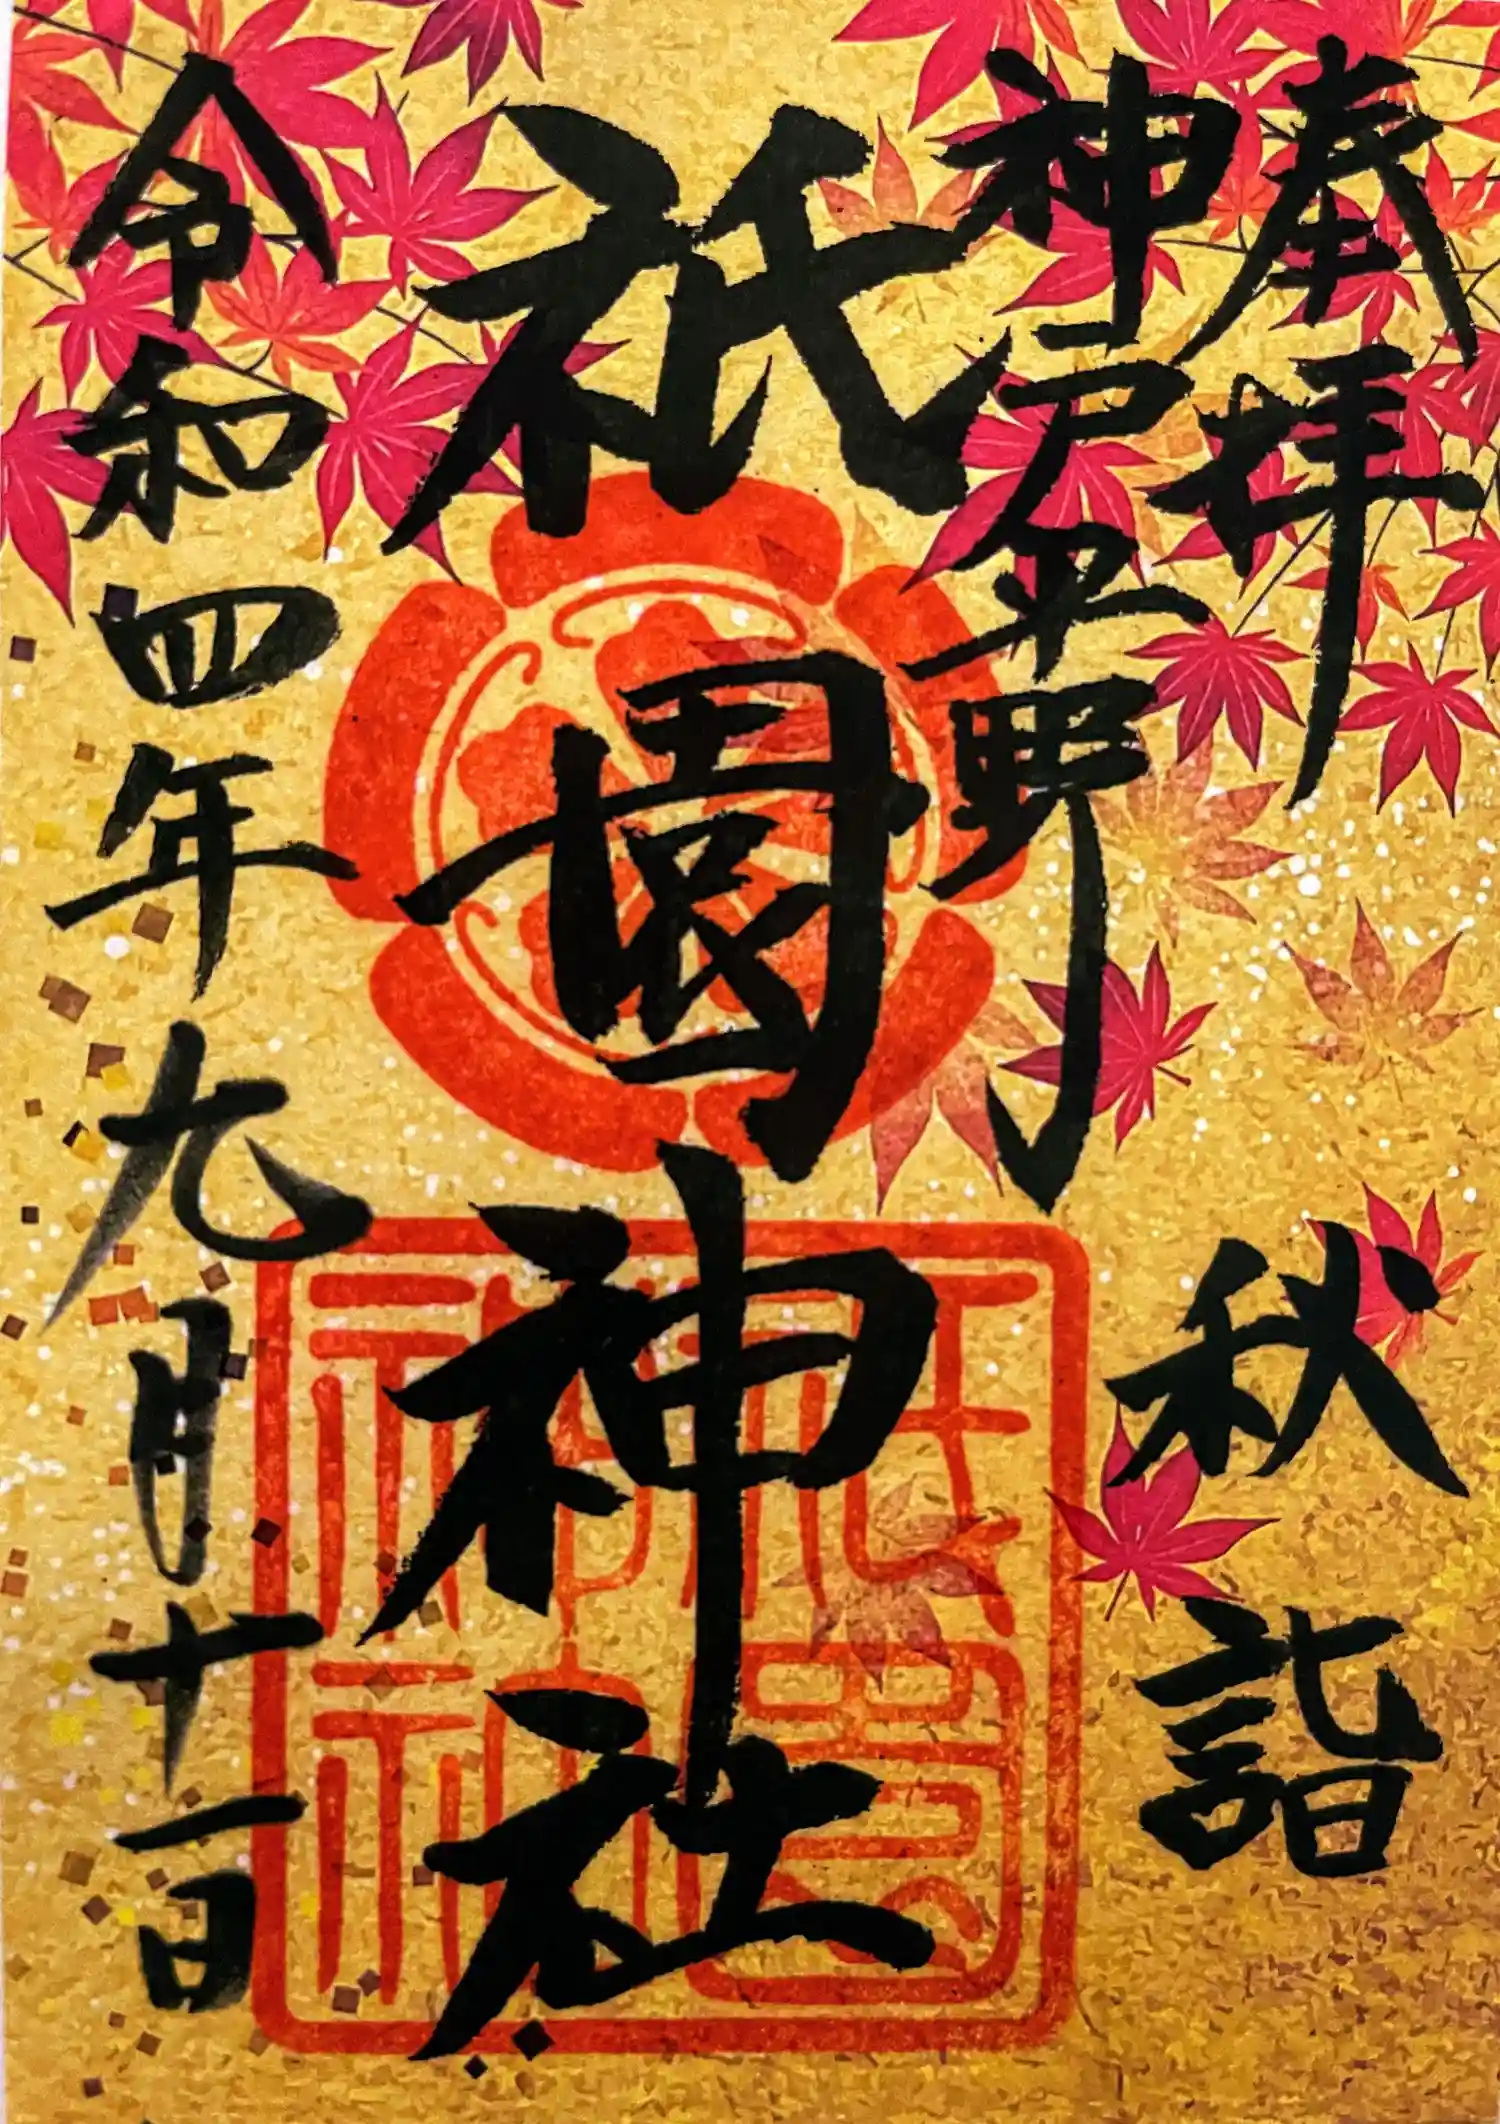 奉拝
秋詣
神戸平野
祇園神社
令和四年九月十一日
祇園
神社